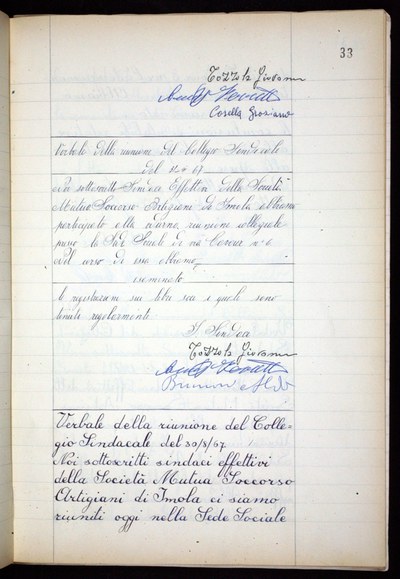 33
Giovanni
Cosella Graziano
Verbale della riunione del Collegio Sindacale
del
sottoscritti Sindaci Effettivi della Società
Mutuo Soccorso Artigiani di Imola abbiamo
partecipato alla riunione collegiale
presso la Sede Sociale di via Cavour n° 6
Nel corso di essa abbiamo
esaminato
le registrazioni sui libri soci i quali sono
tenuti regolarmente
I Sindaci
Giovanni
Aldo
Verbale della riunione del Colle-
gio Sindacale del 30/8/67
Noi sottoscritti sindaci effettivi
della Società Mutua Soccorso
Artigiani di Imola ci siamo
riuniti oggi nella Sede Sociale